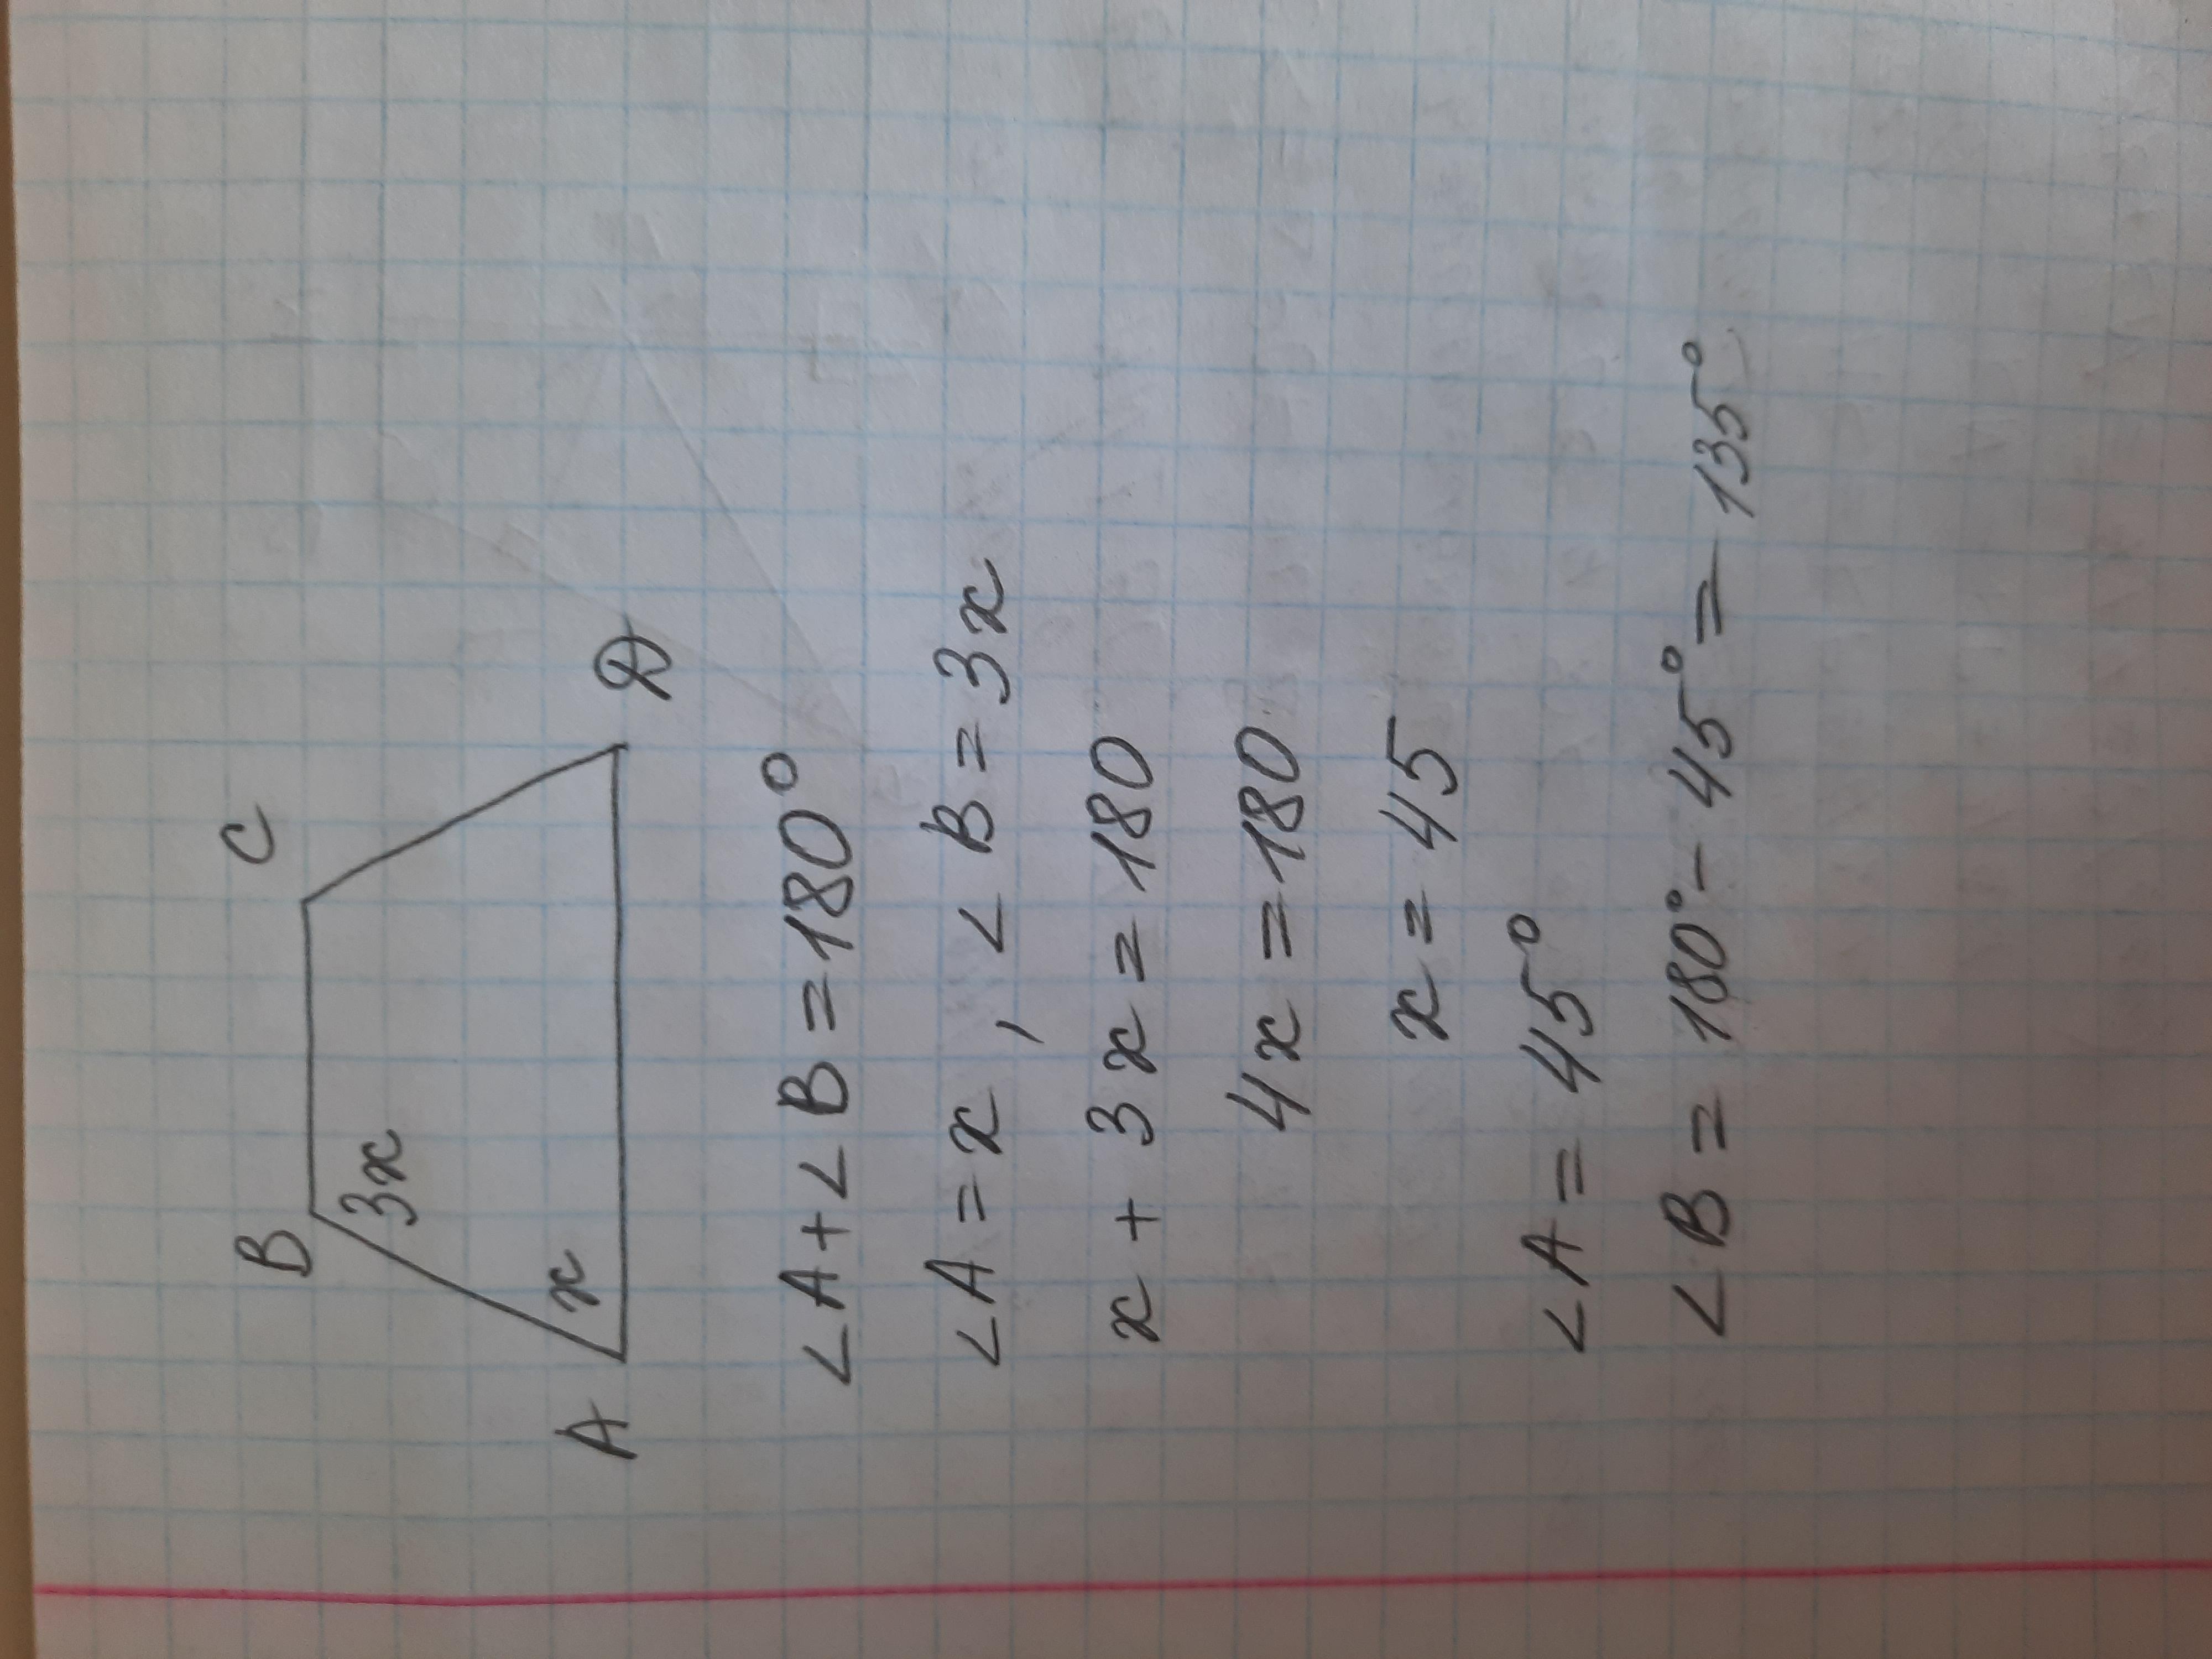 B C
3x
x
A D
∠A+∠B=180°
∠A=x, ∠B=3x
x+3x=180
4x=180
x=45
∠A=45°
∠B=180°-45°=135°